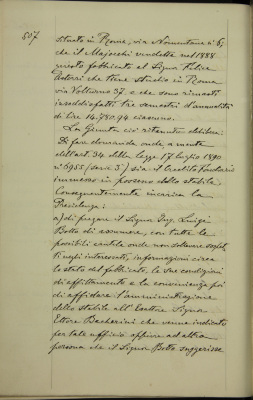 857
situato in Roma, via Nomentana n. 6;
che il Majocchi vendette nel 1888
questo fabbricato al Signor Felice
Astorri che tiene studio in Roma
via Volturno 37. e che sono rimasti
insoddisfatti tre semestri d'annualità
di lire 14.780.94 ciascuno.
La Giunta ciò ritenuto delibera:
Di fare domanda onde, a mente
dell'art. 34 della legge 17 luglio 1890
n. 6955 (serie 3) sia il Credito Fondiario
immesso in possesso dello stabile.
Conseguentemente incarica la
Presidenza:
a) di pregare il Signor Ing. Luigi
Botto di assumere, con tutte le
possibili cautele onde non sollevare
negli interessati, informazioni circa
lo stato del fabbricato, le sue condizioni
di affittamento e la convenienza poi
di affidare l'amministrazione
dello stabile all'Esattore Signor
Ettore Bacherini che venne indicato
per tale ufficio oppure ad altra
persona che il Signor Botto suggerisse